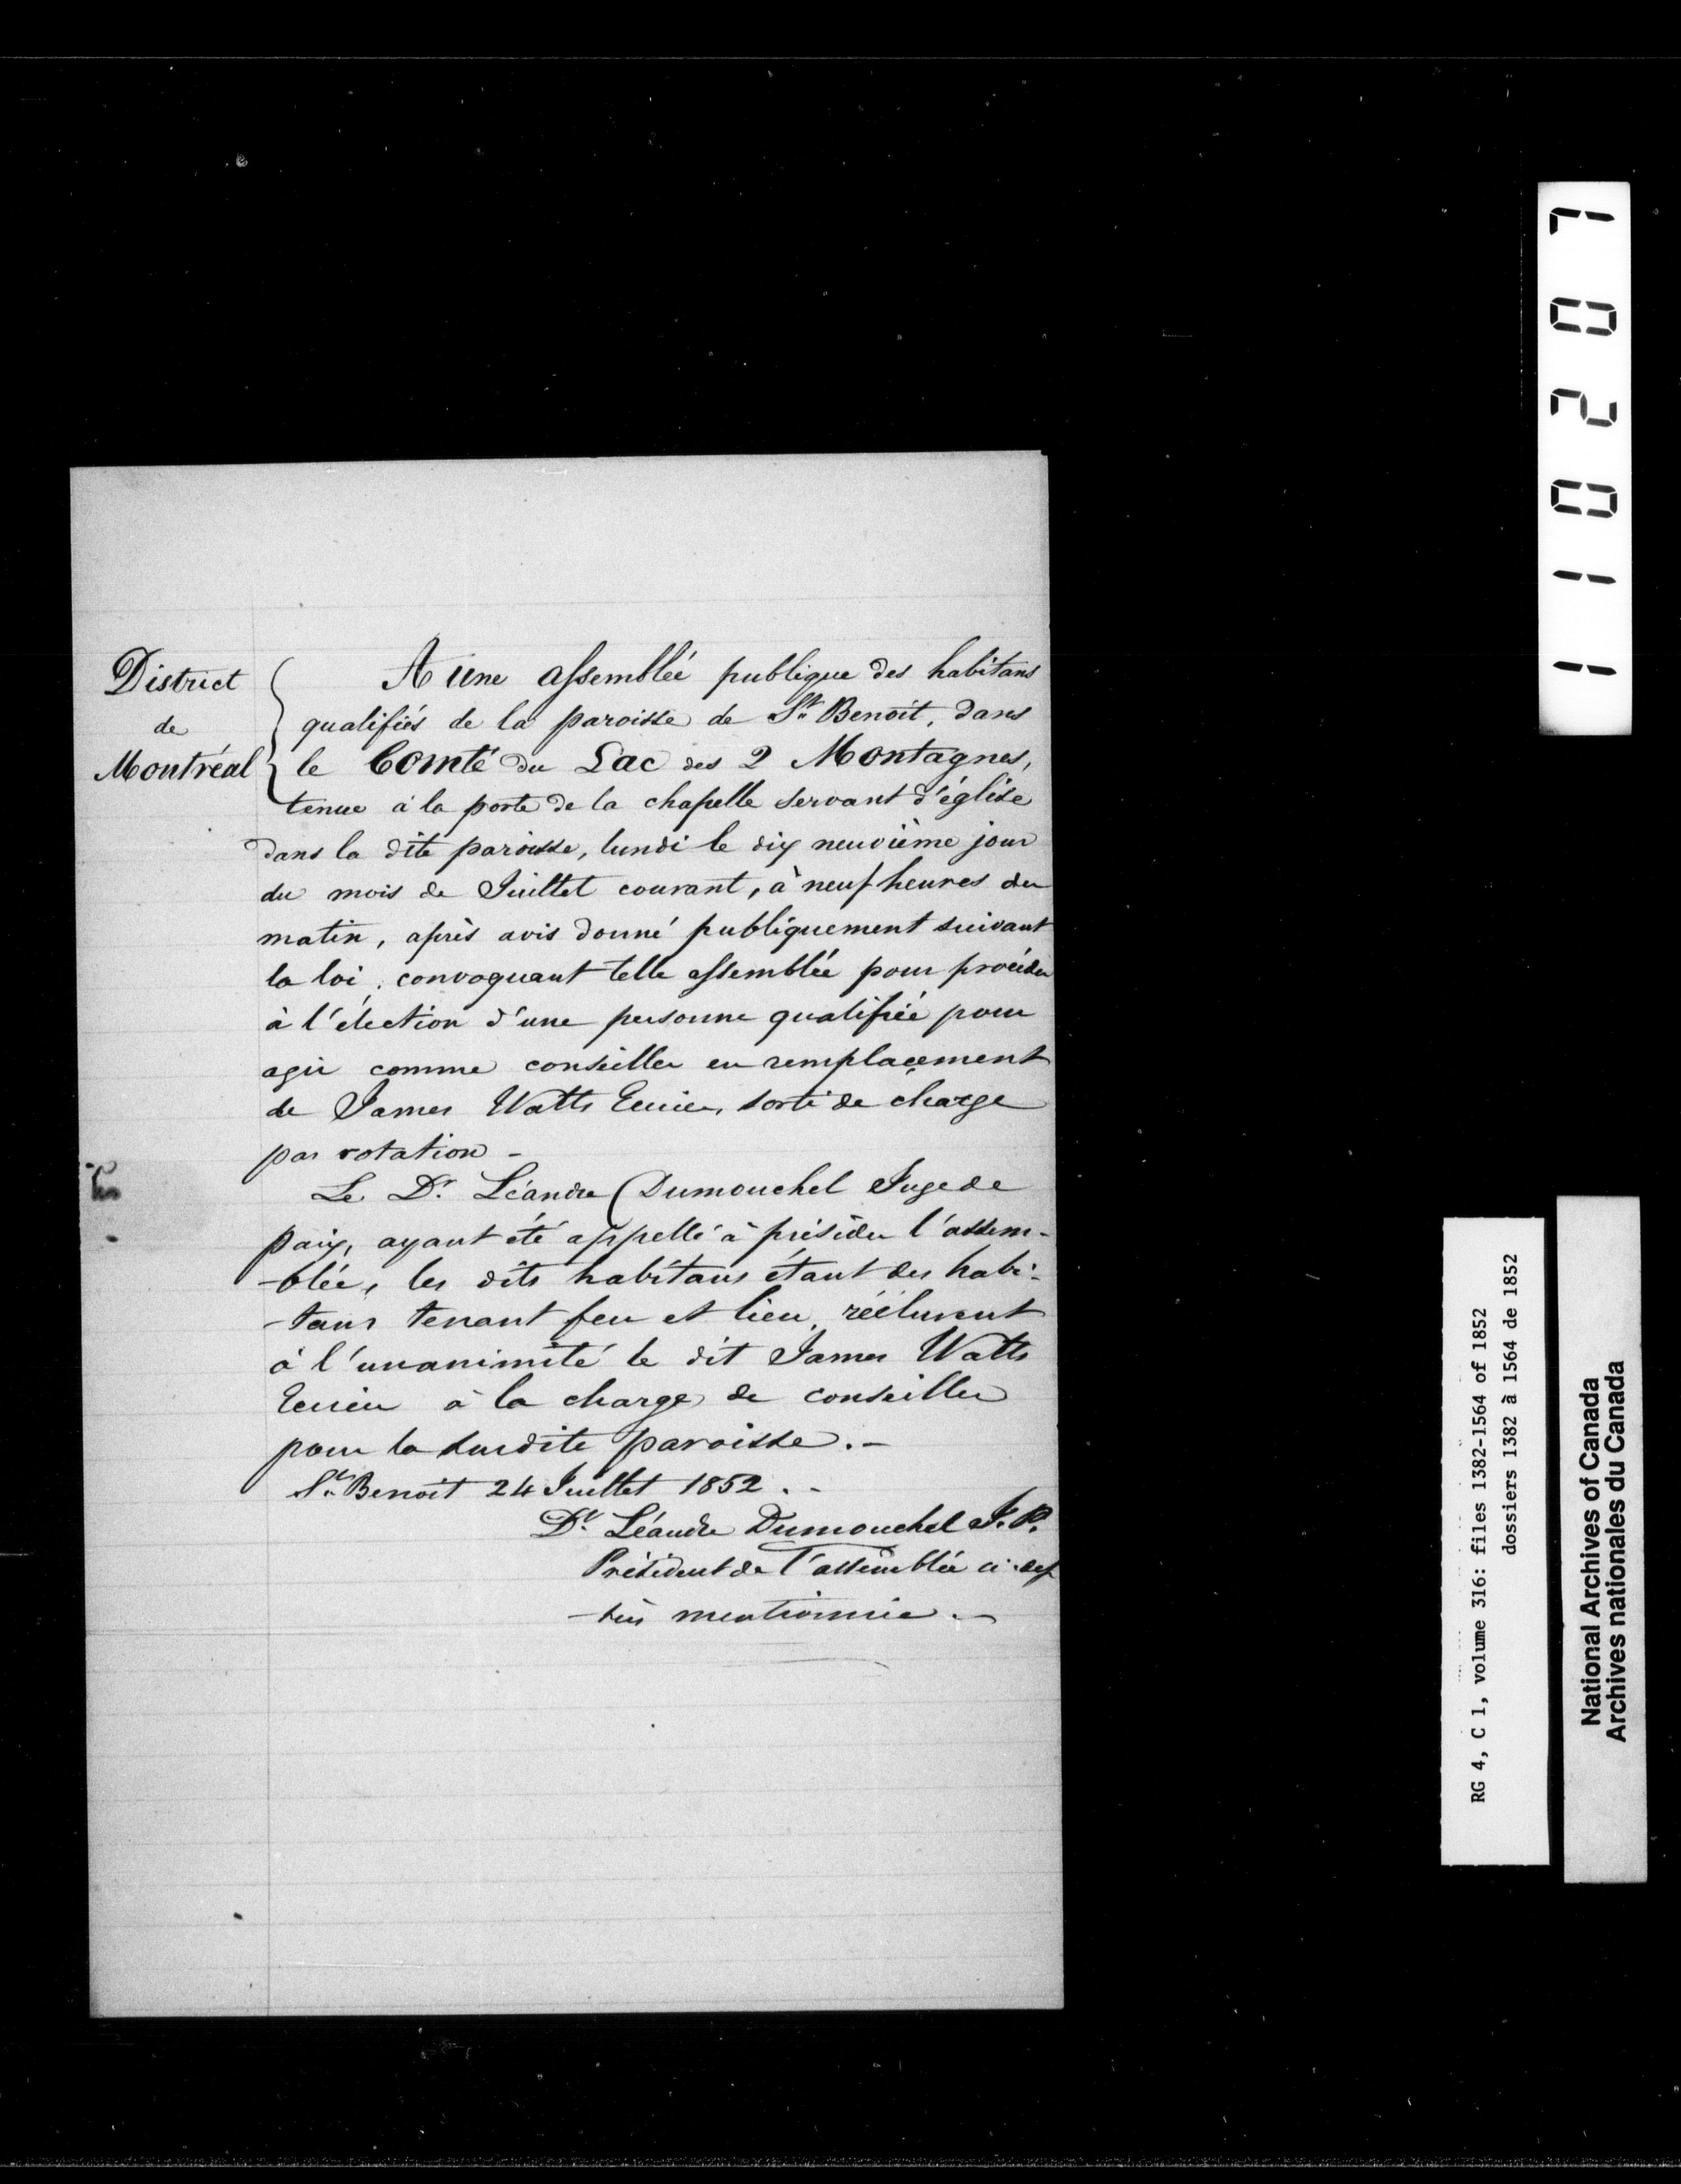 District
de
Montréal
A une assemblée publique des habitans
qualifiés de la paroisse de St. Benoit, dans
le Comté du Lac des 2 Montagnes,
tenue à la porte de la chapelle servant d'église
dans la dite paroisse, lundi le dix neuvième jour
du mois de Juillet courant, à neuf heures du
matin, après avis donné publiquement suivant
la loi, convoquant telle assemblée pour procéder
à l'élection d'une personne qualifiée pour
agir comme conseiller en remplacement
de James Watts Ecuier, sorti de charge
par rotation -
Le Dr. Léandre Dumouchel Juge de
paix, ayant été appellé à présider l'assem-
-blée, les dits habitans étant des habi-
-tans tenant feu et lieu, réélurent
à l'unanimité le dit James Watts
Ecuier à la charge de conseiller
pour la susdite paroisse. -
St. Benoit 24 Juillet 1852. -
Dr. Léandre Dumouchel J. P.
Président de l'assemblée ci-des
-sus mentionnée. -
110207
RG 4, C 1, volume 316: files 1382-1564 of 1852
dossiers 1382 à 1564 de 1852
National Archives of Canada
Archives nationales du Canada